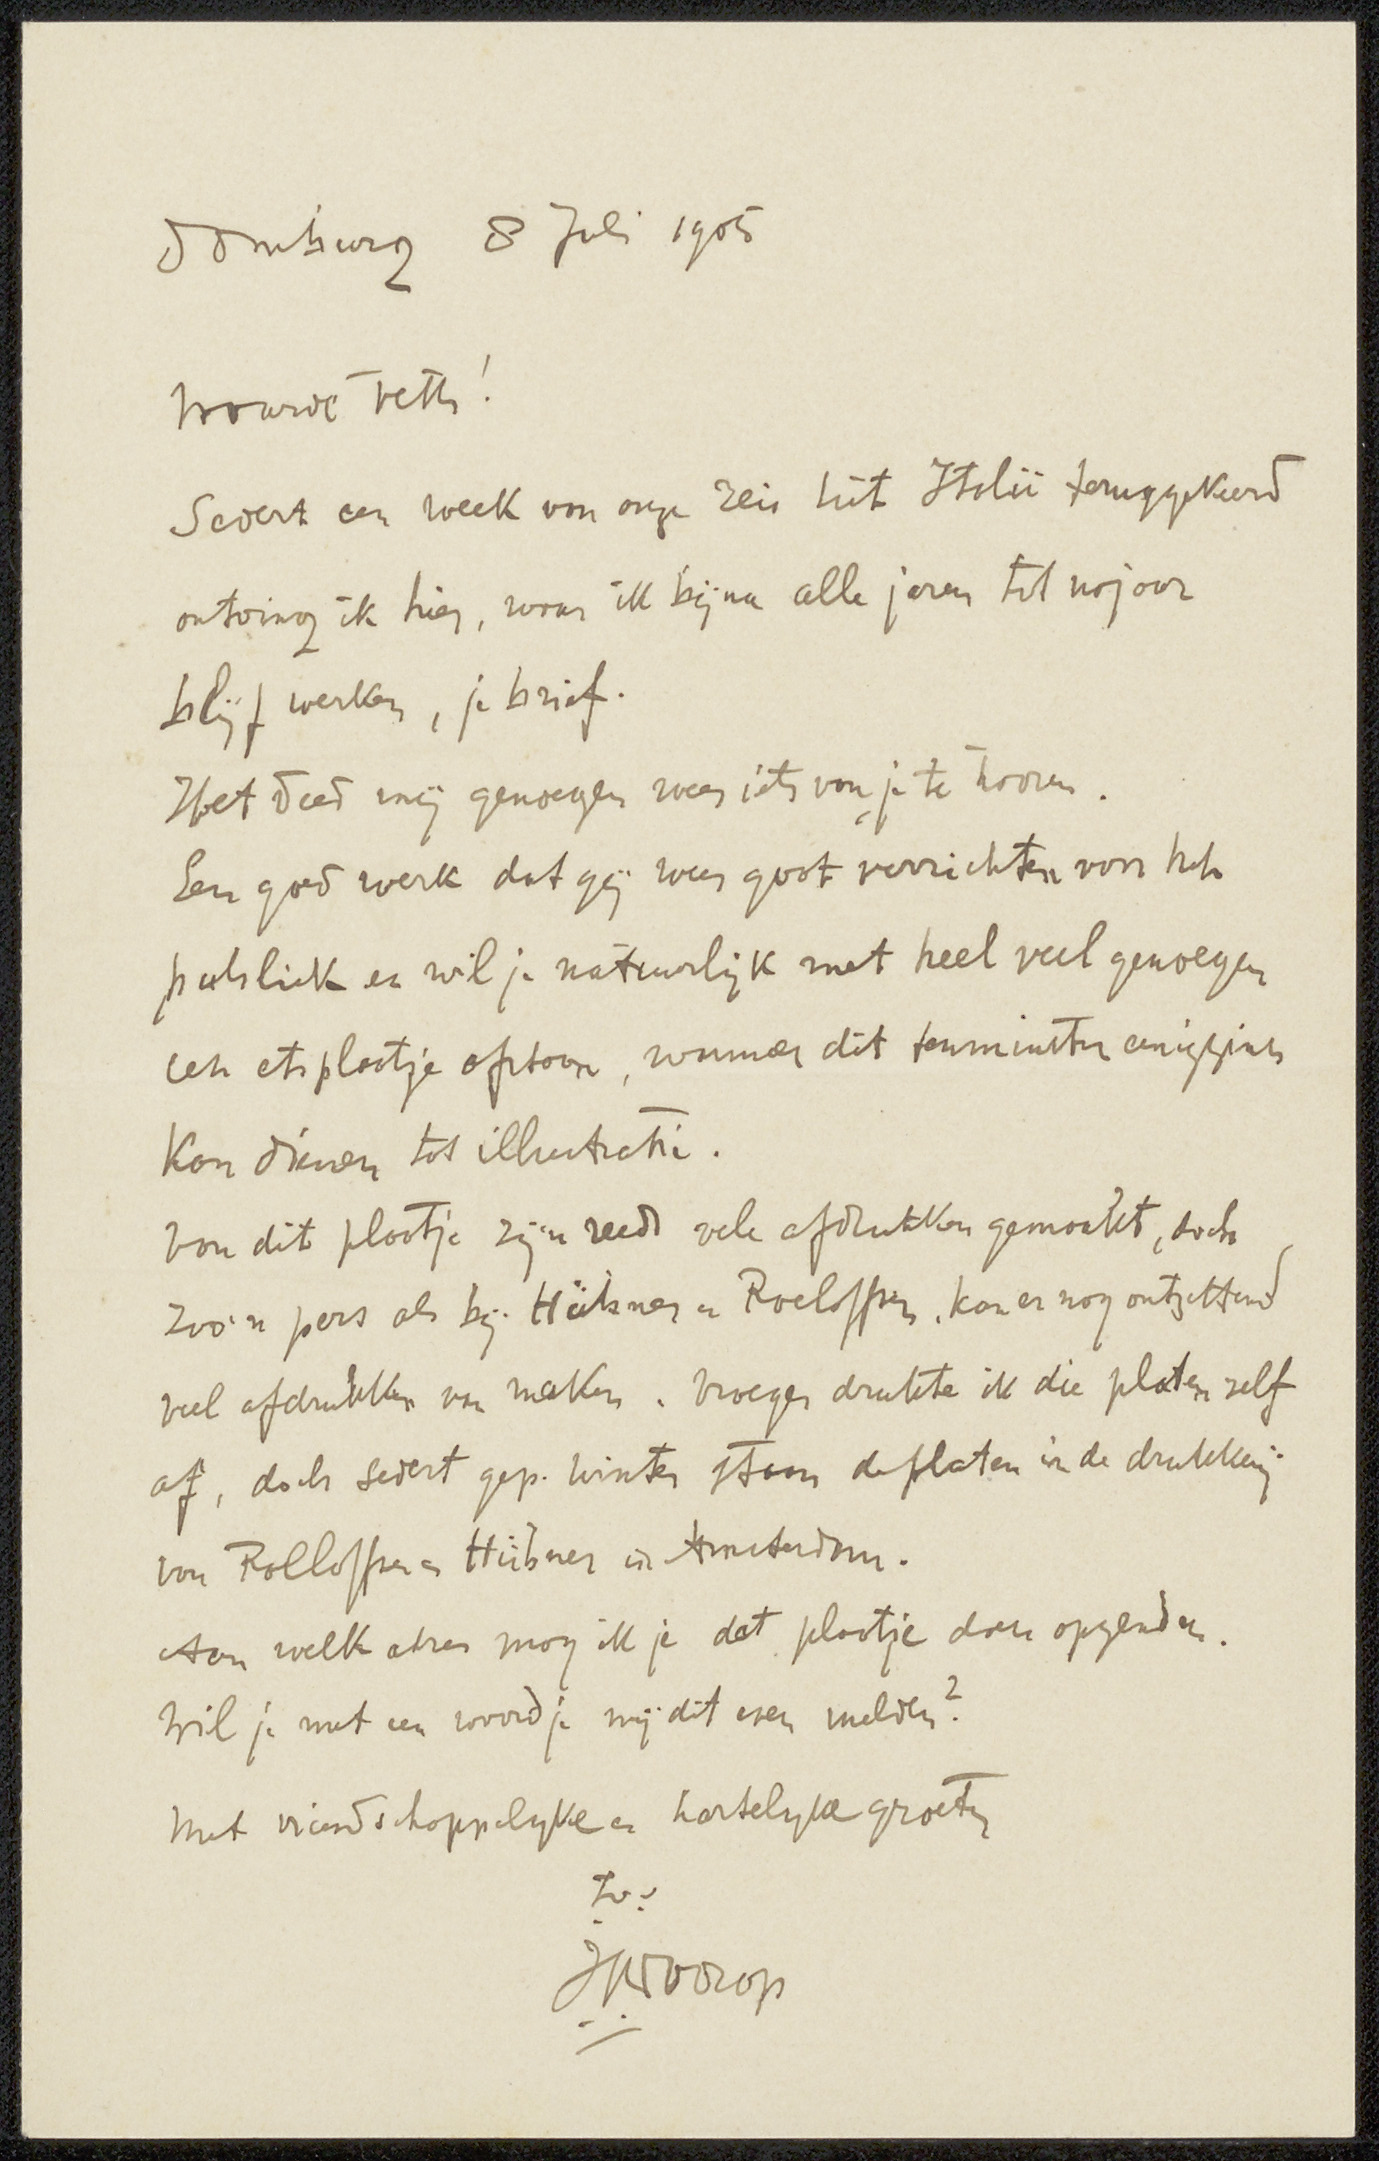 Domburg 8 Juli 1905
Waarde Veth!
Sedert een week van onze reis uit Italië teruggekeerd
ontving ik hier, waar ik bijna alle jaren tot najaar
blijf werken, je brief.
Het deed mij genoegen weer iets van je te hooren.
Een goed werk dat gij weer gaat verrichten voor het
publiek en wil je natuurlijk met heel veel genoegen
een etsplaatje afstaan, wanneer dit tenminste eenigzins
kan dienen tot illustratie.
Van dit plaatje zijn reeds vele afdrukken gemaakt, doch
zoo'n pers als bij Hübner en Roeloffzen, kan er nog ontzettend
veel afdrukken van maken. Vroeger drukte ik die platen zelf
af, doch sedert gep. winter staan de platen in de drukkerij
van Rolloffzen en Hübner in Amsterdam.
Aan welk adres mag ik je dat plaatje doen opzenden.
Wil je met een woordje mij dit even melden?
Met vriendschappelijke en hartelijke groeten
tv.
JThToorop